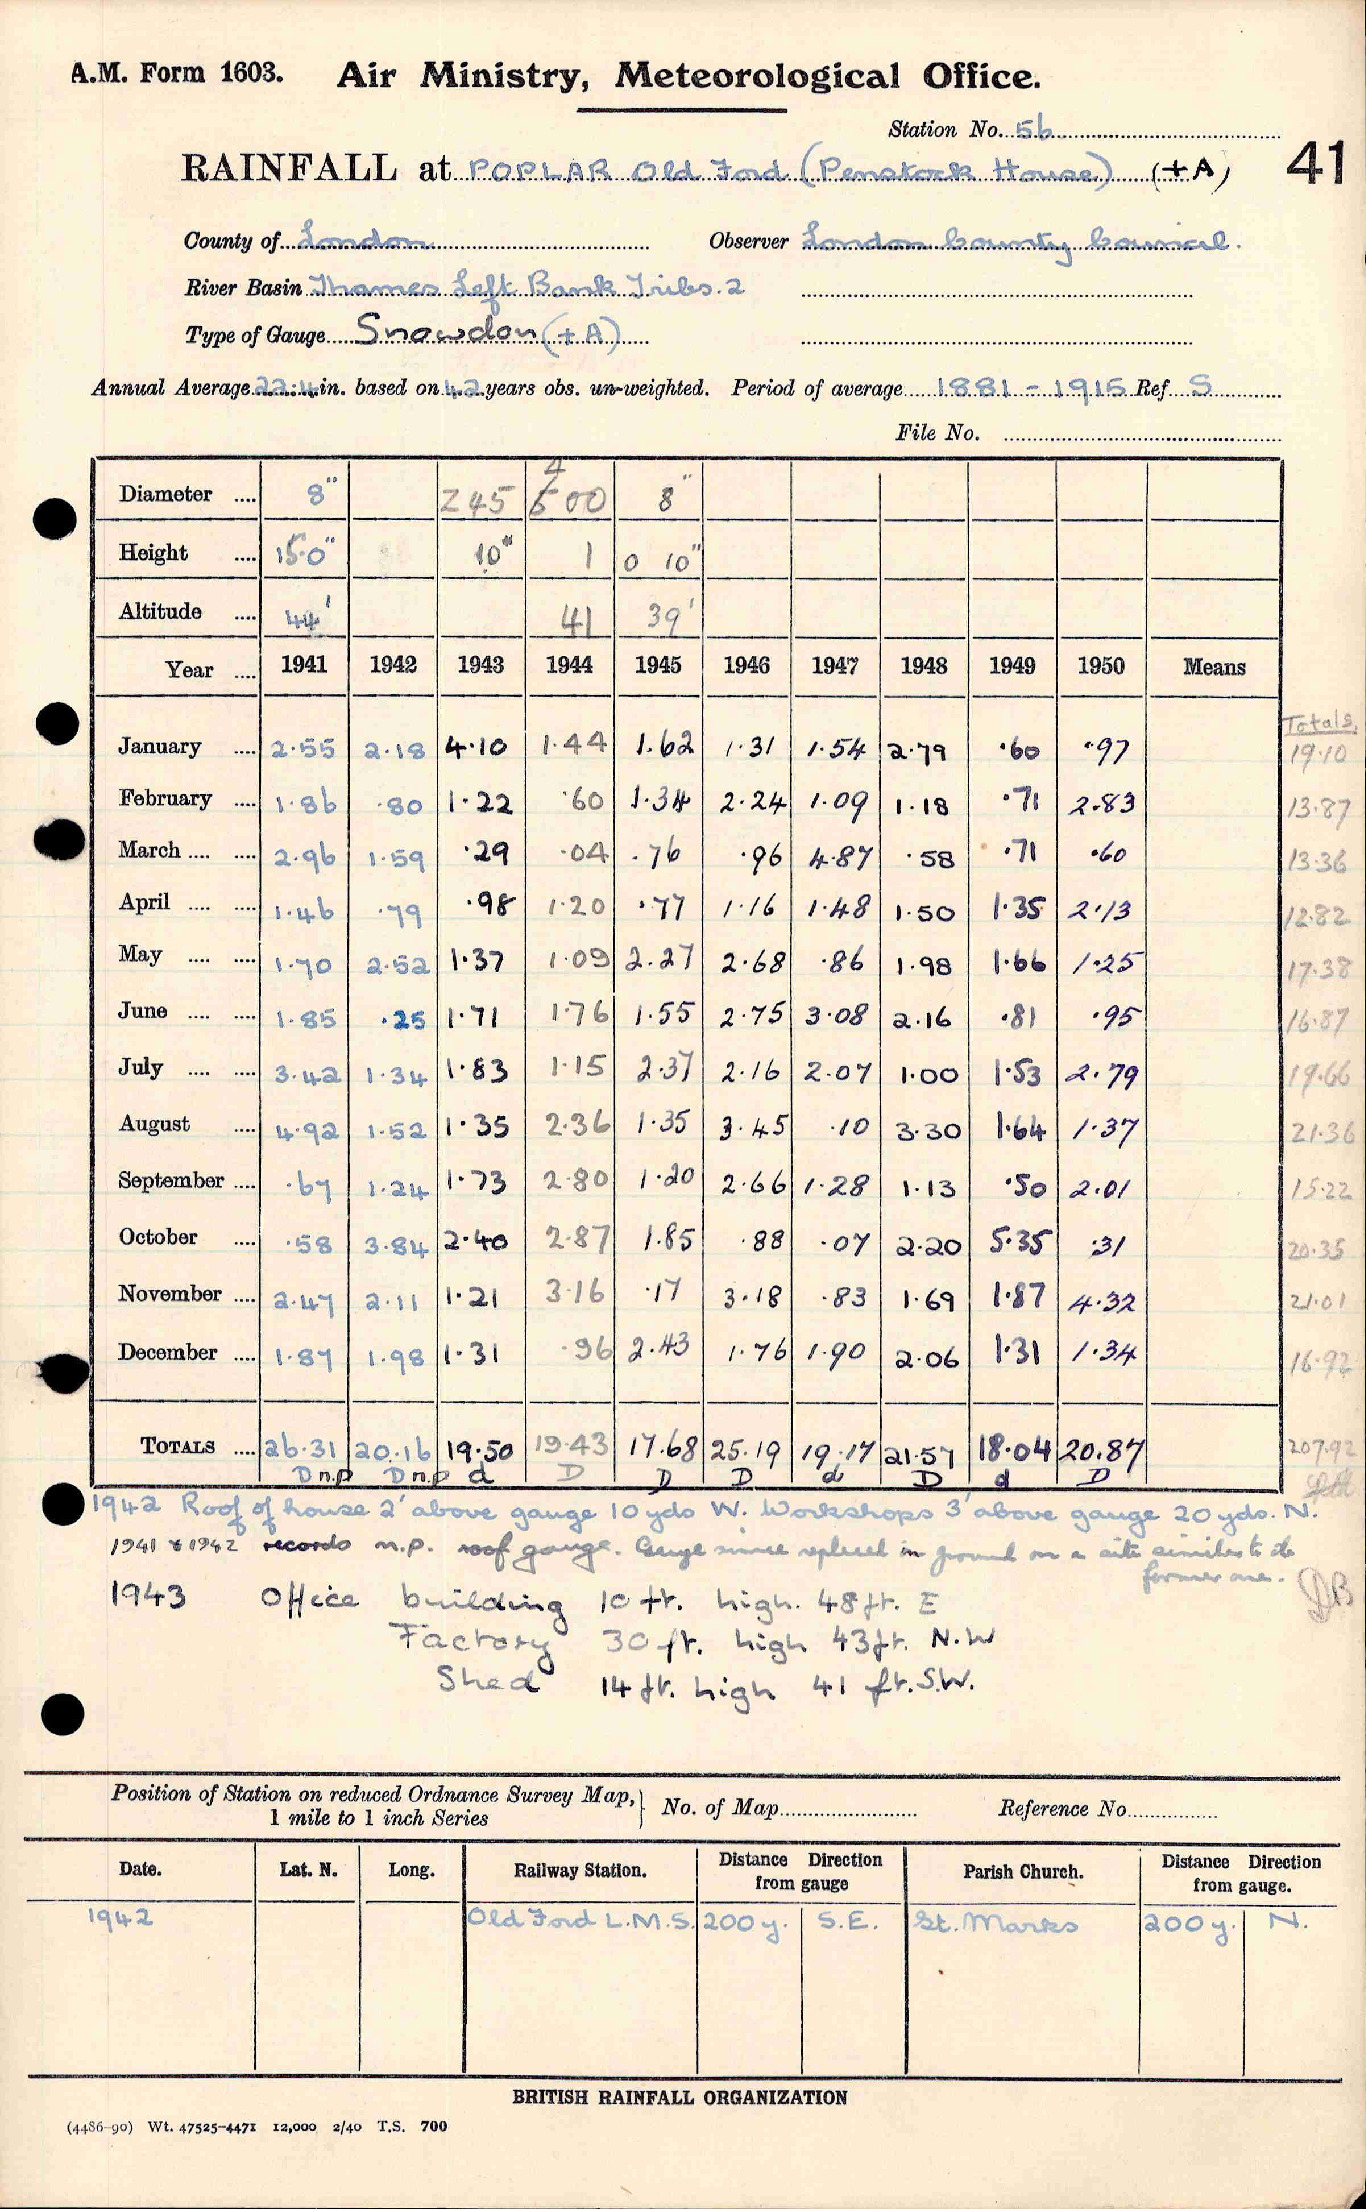 A.M. Form 1603. Air Ministry, Meteorological Office.
Station No. 56
RAINFALL at POPLAR Old Ford (Penstock House) (+A) 41
County of London Observer London County Council.
River Basin Thames Left Bank Tribs. 2
Type of Gauge Snowdon (+A)
Annual Average 22.4 in. based on 42 years obs. un-weighted. Period of average 1881 - 1915 Ref S
File No.
Diameter .... 8" 245 500 8"
Height .... 15.0" 10" 1 0 10"
Altitude .... 44' 41 39'
Year .... 1941 1942 1943 1944 1945 1946 1947 1948 1949 1950 Means
Totals.
January .... 2.55 2.18 4.10 1.44 1.62 1.31 1.54 2.79 .60 .97 19.10
February .... 1.86 .80 1.22 .60 1.34 2.24 1.09 1.18 .71 2.83 13.87
March .... .... 2.96 1.59 .29 .04 .76 .96 4.87 .58 .71 .60 13.36
April .... .... 1.46 .79 .98 1.20 .77 1.16 1.48 1.50 1.35 2.13 12.82
May .... .... 1.70 2.52 1.37 1.09 2.27 2.68 .86 1.98 1.66 1.25 17.38
June .... .... 1.85 .25 1.71 1.76 1.55 2.75 3.08 2.16 .81 .95 16.87
July .... .... 3.42 1.34 1.83 1.15 2.37 2.16 2.07 1.00 1.53 2.79 19.66
August .... 4.92 1.52 1.35 2.36 1.35 3.45 .10 3.30 1.64 1.37 21.36
September .... .67 1.24 1.73 2.80 1.20 2.66 1.28 1.13 .50 2.01 15.22
October .... .58 3.84 2.40 2.87 1.85 .88 .07 2.20 5.35 .31 20.35
November .... 2.47 2.11 1.21 3.16 .17 3.18 .83 1.69 1.87 4.32 21.01
December .... 1.87 1.98 1.31 .96 2.43 1.76 1.90 2.06 1.31 1.34 16.92
TOTALS .... 26.31 20.16 19.50 19.43 17.68 25.19 19.17 21.57 18.04 20.87 207.92
D n.p D n.p d D D D d D d D
1942 Roof of house 2' above gauge 10 yds W. Workshops 3' above gauge 20 yds. N.
1941 & 1942 records n.p. roof gauge. Gauge since replaced in ground on a site similar to the
former one. DB
1943 Office building 10 ft. high. 48 ft. E
Factory 30 ft. high 43 ft. N.W
Shed 14 ft. high 41 ft. S.W.
Position of Station on reduced Ordnance Survey Map,} No. of Map Reference No.
1 mile to 1 inch Series
Date. Lat. N. Long. Railway Station. Distance Direction from gauge Parish Church. Distance Direction from gauge.
1942 Old Ford L.M.S. 200 y. S.E. St. Marks 200 y. N.
BRITISH RAINFALL ORGANIZATION
(4486-90) Wt. 47525-4471 12,000 2/40 T.S. 700